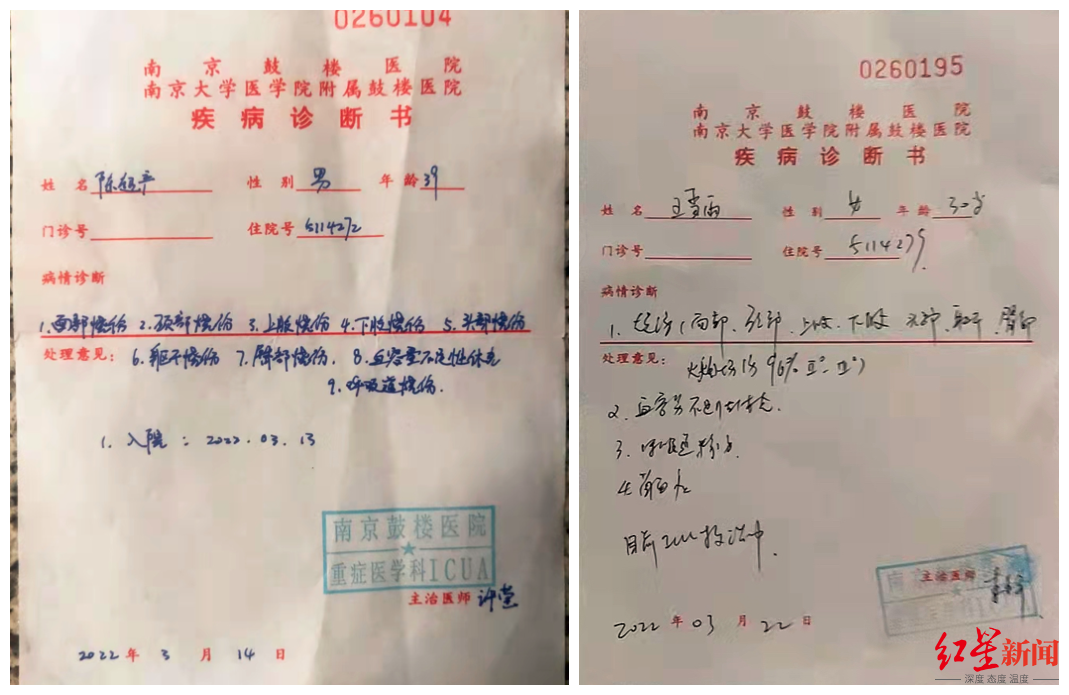 0260104
南京鼓楼医院
南京大学医学院附属鼓楼医院
疾病诊断书
姓名 陈 性别 男 年龄 39
门诊号 住院号 5114272
病情诊断
1.面部烧伤 2.颈部烧伤 3.上肢烧伤 4.下肢烧伤 5.头部烧伤
处理意见： 6.躯干烧伤 7.臀部烧伤 8.血容量不足性休克
9.呼吸道烧伤.
1.入院：2022.03.13
南京鼓楼医院
重症医学科ICUA
主治医师 许莹
2022年3月14日
0260195
南京鼓楼医院
南京大学医学院附属鼓楼医院
疾病诊断书
姓名 王雪雨 性别 女 年龄 30岁
门诊号 住院号 5114275
病情诊断
1.烧伤(面部、颈部、上肢、下肢、头部、躯干、臀部
处理意见： 火焰烧伤96% Ⅱ°-Ⅲ°)
2.血容量不足性休克.
3.呼吸道烧伤.
4.
目前ICU救治中.
南京鼓楼医院
主治医师
2022年03月22日
红星新闻
深度 态度 温度